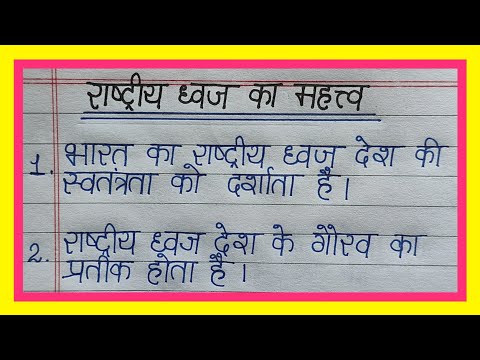 राष्ट्रीय ध्वज का महत्त्व
1. भारत का राष्ट्रीय ध्वज देश की
स्वतंत्रता को दर्शाता है।
2. राष्ट्रीय ध्वज देश के गौरव का
प्रतीक होता है।